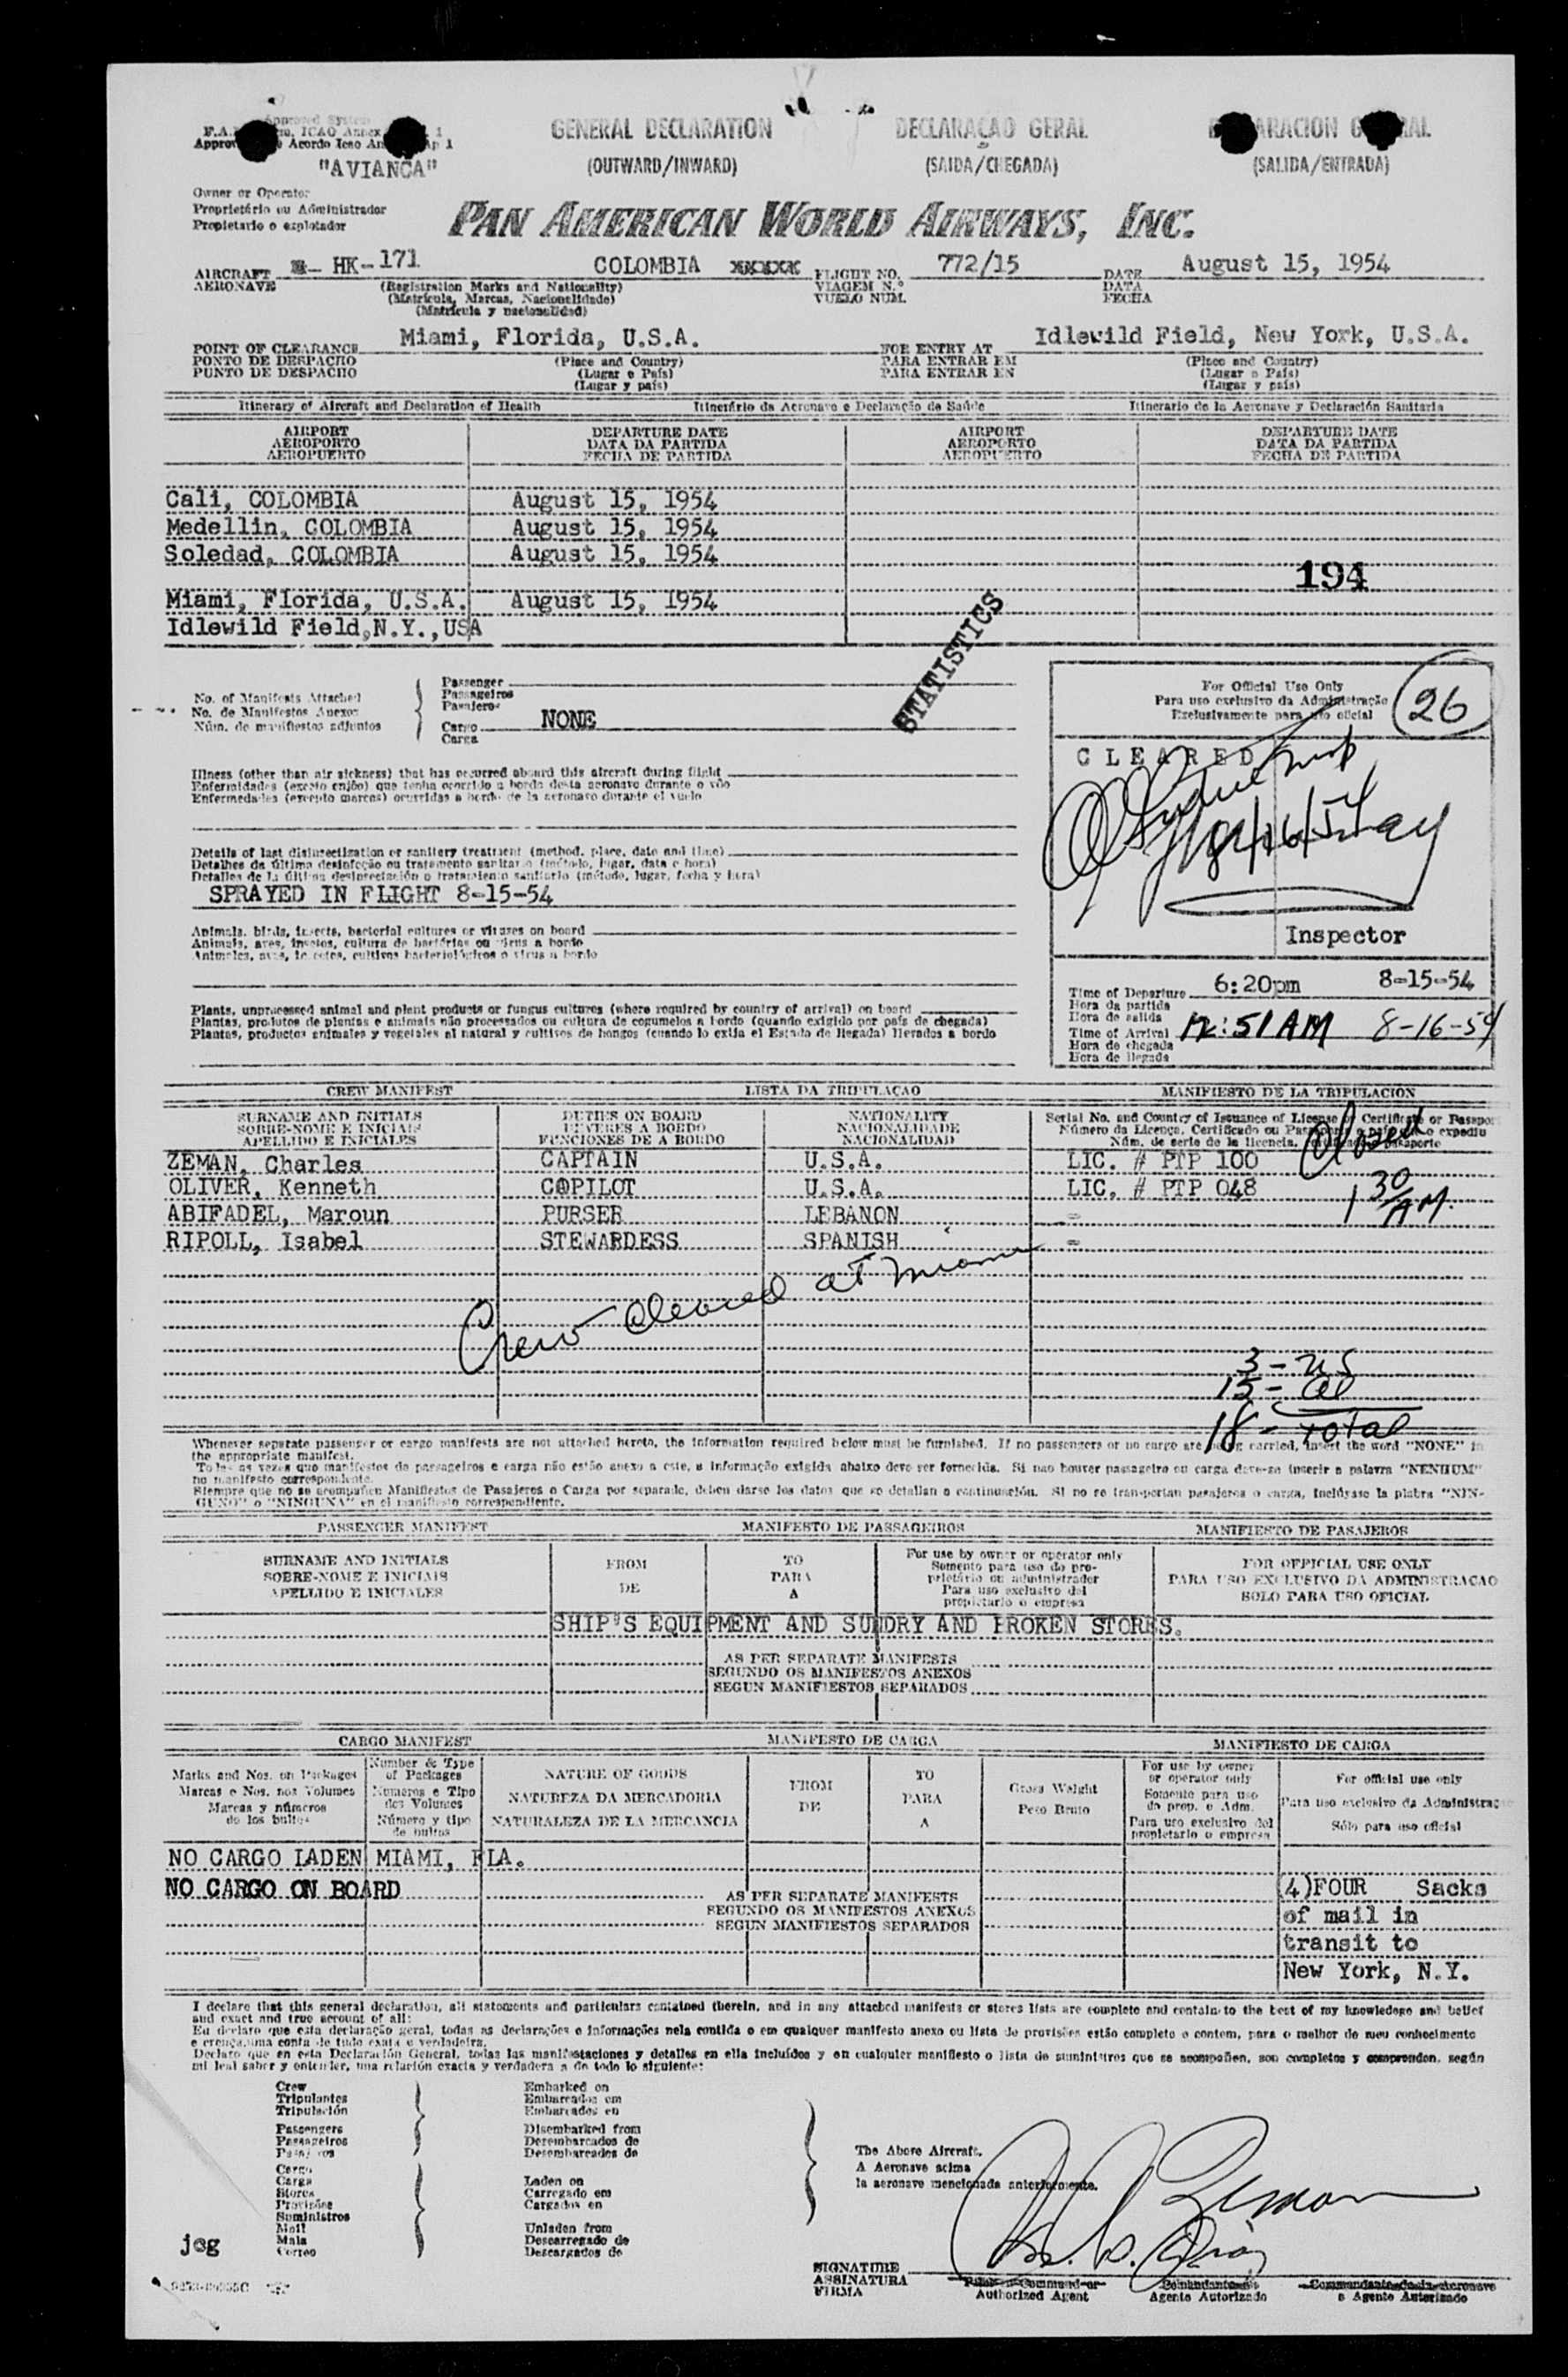 GENERAL DECLARATION
DECLARAÇAO GERAL
(OUTWARD/INWARD)
(SAIDA/CHEGADA)
(SALIDA/ENTRADA)
"AVIANCA"
Owner or Operator
Proprietário ou Administrador
Propietario o explotador
PAN AMERICAN WORLD AIRWAYS, INC.
AIRCRAFT HK-171 COLOMBIA FLIGHT NO. 772/15 DATE August 15, 1954
AERONAVE (Registration Marks and Nationality) VIAGEM N.º DATA
(Matrícula, Marcas, Nacionalidade) VUELO NUM. FECHA
(Matrícula y nacionalidad)
POINT OF CLEARANCE Miami, Florida, U.S.A. FOR ENTRY AT Idlewild Field, New York, U.S.A.
PONTO DE DESPACHO (Place and Country) PARA ENTRAR EM (Place and Country)
PUNTO DE DESPACHO (Lugar e País) PARA ENTRAR EN (Lugar e País)
(Lugar y país) (Lugar y país)
Itinerary of Aircraft and Declaration of Health Itinerário da Aeronave e Declaração de Saúde Itinerario de la Aeronave y Declaración Sanitaria
AIRPORT DEPARTURE DATE AIRPORT DEPARTURE DATE
AEROPORTO DATA DA PARTIDA AEROPORTO DATA DA PARTIDA
AEROPUERTO FECHA DE PARTIDA AEROPUERTO FECHA DE PARTIDA
Cali, COLOMBIA August 15, 1954
Medellin, COLOMBIA August 15, 1954
Soledad, COLOMBIA August 15, 1954
194
Miami, Florida, U.S.A. August 15, 1954
Idlewild Field,N.Y.,USA
STATISTICS
No. of Manifests Attached
No. de Manifestos Anexos
Núm. de manifiestos adjuntos
Passenger
Passageiros
Pasajeros
Cargo NONE
Carga
For Official Use Only
Para uso exclusivo da Administração
Exclusivamente para uso oficial
26
CLEARED
8/16/54
Inspector
Illness (other than air sickness) that has occurred aboard this aircraft during flight
Enfermidades (exceto enjôo) que tenha ocorrido a bordo desta aeronave durante o vôo
Enfermedades (excepto mareos) ocurridas a bordo de la aeronave durante el vuelo
Details of last disinsectization or sanitary treatment (method, place, date and time)
Detalhes de última desinfeção ou tratamento sanitario (método, lugar, data e hora)
Detalles de la última desinsectación o tratamiento sanitario (método, lugar, fecha y hora)
SPRAYED IN FLIGHT 8-15-54
Animals, birds, insects, bacterial cultures or viruses on board
Animais, aves, insetos, cultura de bactérias ou virus a bordo
Animales, aves, insectos, cultivos bacteriológicos o virus a bordo
Plants, unprocessed animal and plant products or fungus cultures (where required by country of arrival) on board
Plantas, produtos de plantas e animais não processados ou cultura de cogumelos a bordo (quando exigido por país de chegada)
Plantas, productos animales y vegetales al natural y cultivos de hongos (cuando lo exija el Estado de llegada) llevados a bordo
Time of Departure 6:20pm 8-15-54
Hora da partida
Hora de salida
Time of Arrival 12:51AM 8-16-54
Hora de chegada
Hora de llegada
CREW MANIFEST LISTA DA TRIPULAÇAO MANIFIESTO DE LA TRIPULACION
SURNAME AND INITIALS DUTIES ON BOARD NATIONALITY
SOBRE-NOME E INICIAIS DEVERES A BORDO NACIONALIDADE
APELLIDO E INICIALES FUNCIONES DE A BORDO NACIONALIDAD
Serial No. and Country of Issuance of License or Certificate or Passport
ZEMAN, Charles CAPTAIN U.S.A. LIC. # PTP 100
OLIVER, Kenneth COPILOT U.S.A. LIC. # PTP 048
ABIFADEL, Maroun PURSER LEBANON -
RIPOLL, Isabel STEWARDESS SPANISH -
Closed
1 30 AM
Crew cleared at Miami
3 - US
15 - al
18 - Total
Whenever separate passenger or cargo manifests are not attached hereto, the information required below must be furnished. If no passengers or no cargo are being carried, insert the word "NONE" in
the appropriate manifest.
Todas as vezes que manifestos de passageiros e carga não estão anexo a este, a informação exigida abaixo deve ser fornecida. Si nao houver passageiro ou carga deve-se inserir a palavra "NENHUM"
no manifesto correspondente.
Siempre que no se acompañen Manifiestos de Pasajeros o Carga por separado, deben darse los datos que se detallan a continuación. Si no se transportan pasajeros o carga, inclúyase la plabra "NIN-
GUNO" o "NINGUNA" en el manifiesto correspondiente.
PASSENGER MANIFEST MANIFESTO DE PASSAGEIROS MANIFIESTO DE PASAJEROS
SURNAME AND INITIALS FROM TO For use by owner or operator only FOR OFFICIAL USE ONLY
SOBRE-NOME E INICIAIS DE PARA Somento para uso do proprietário ou administrador PARA USO EXCLUSIVO DA ADMINISTRACAO
APELLIDO E INICIALES A Para uso exclusivo del propietario o empresa SOLO PARA USO OFICIAL
SHIP'S EQUIPMENT AND SUNDRY AND BROKEN STORES.
AS PER SEPARATE MANIFESTS
SEGUNDO OS MANIFESTOS ANEXOS
SEGUN MANIFIESTOS SEPARADOS
CARGO MANIFEST MANIFESTO DE CARGA MANIFIESTO DE CARGA
Marks and Nos. on Packages Number & Type of Packages NATURE OF GOODS FROM TO Gross Weight For use by owner or operator only For official use only
Marcas e Nos. nos Volumes Numeros e Tipo dos Volumes NATUREZA DA MERCADORIA DE PARA Peso Bruto Somento para uso do prop. e Adm. Para uso exclusivo da Administraç
Marcas y números de los bultos Número y tipo de bultos NATURALEZA DE LA MERCANCIA A Para uso exclusivo del propietario o empresa Sólo para uso oficial
NO CARGO LADEN MIAMI, FLA.
NO CARGO ON BOARD
AS PER SEPARATE MANIFESTS
SEGUNDO OS MANIFESTOS ANEXOS
SEGUN MANIFIESTOS SEPARADOS
(4)FOUR Sacks
of mail in
transit to
New York, N.Y.
I declare that this general declaration, all statements and particulars contained therein, and in any attached manifests or stores lists are complete and contain to the best of my knowledge and belief
and exact and true account of all:
Eu declaro que esta declaração geral, todas as declarações e informações nela contida o em qualquer manifesto anexo ou lista de provisões estão completo e contem, para o melhor do meu conhecimento
e crença, uma conta de tudo exata e verdadeira.
Declaro que en esta Declaración General, todas las manifestaciones y detalles en ella incluídos y en cualquier manifiesto o lista de suministros que se acompañen, son completos y comprenden, según
mi leal saber y entender, una relación exacta y verdadera a de todo lo siguiente:
Crew Embarked on
Tripulantes Embarcados em
Tripulación Embarcados en
Passengers Disembarked from
Passageiros Desembarcados de
Pasajeros Desembarcados de
Cargo
Carga Laden on
Stores Carregado em
Provisões Cargados en
Suministros
Mail Unladen from
Mala Descarregado de
Correo Descargados de
The Above Aircraft.
A Aeronave acima
la aeronave mencionada anteriormente.
jeg
Zeman
SIGNATURE
ASSINATURA
FIRMA
Pilot in Command or Comandante Commandante de la Aeronave
Authorized Agent Agente Autorizado o Agente Autorizado